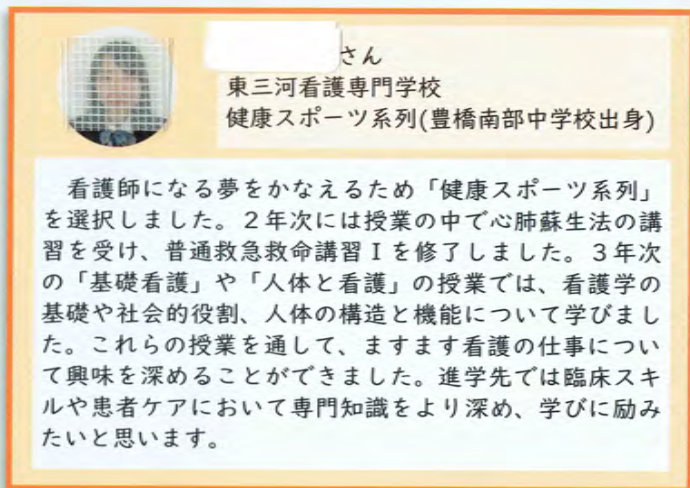 さん
東三河看護専門学校
健康スポーツ系列(豊橋南部中学校出身)
看護師になる夢をかなえるため「健康スポーツ系列」
を選択しました。２年次には授業の中で心肺蘇生法の講
習を受け、普通救急救命講習Ⅰを修了しました。３年次
の「基礎看護」や「人体と看護」の授業では、看護学の
基礎や社会的役割、人体の構造と機能について学びまし
た。これらの授業を通して、ますます看護の仕事につい
て興味を深めることができました。進学先では臨床スキ
ルや患者ケアにおいて専門知識をより深め、学びに励み
たいと思います。